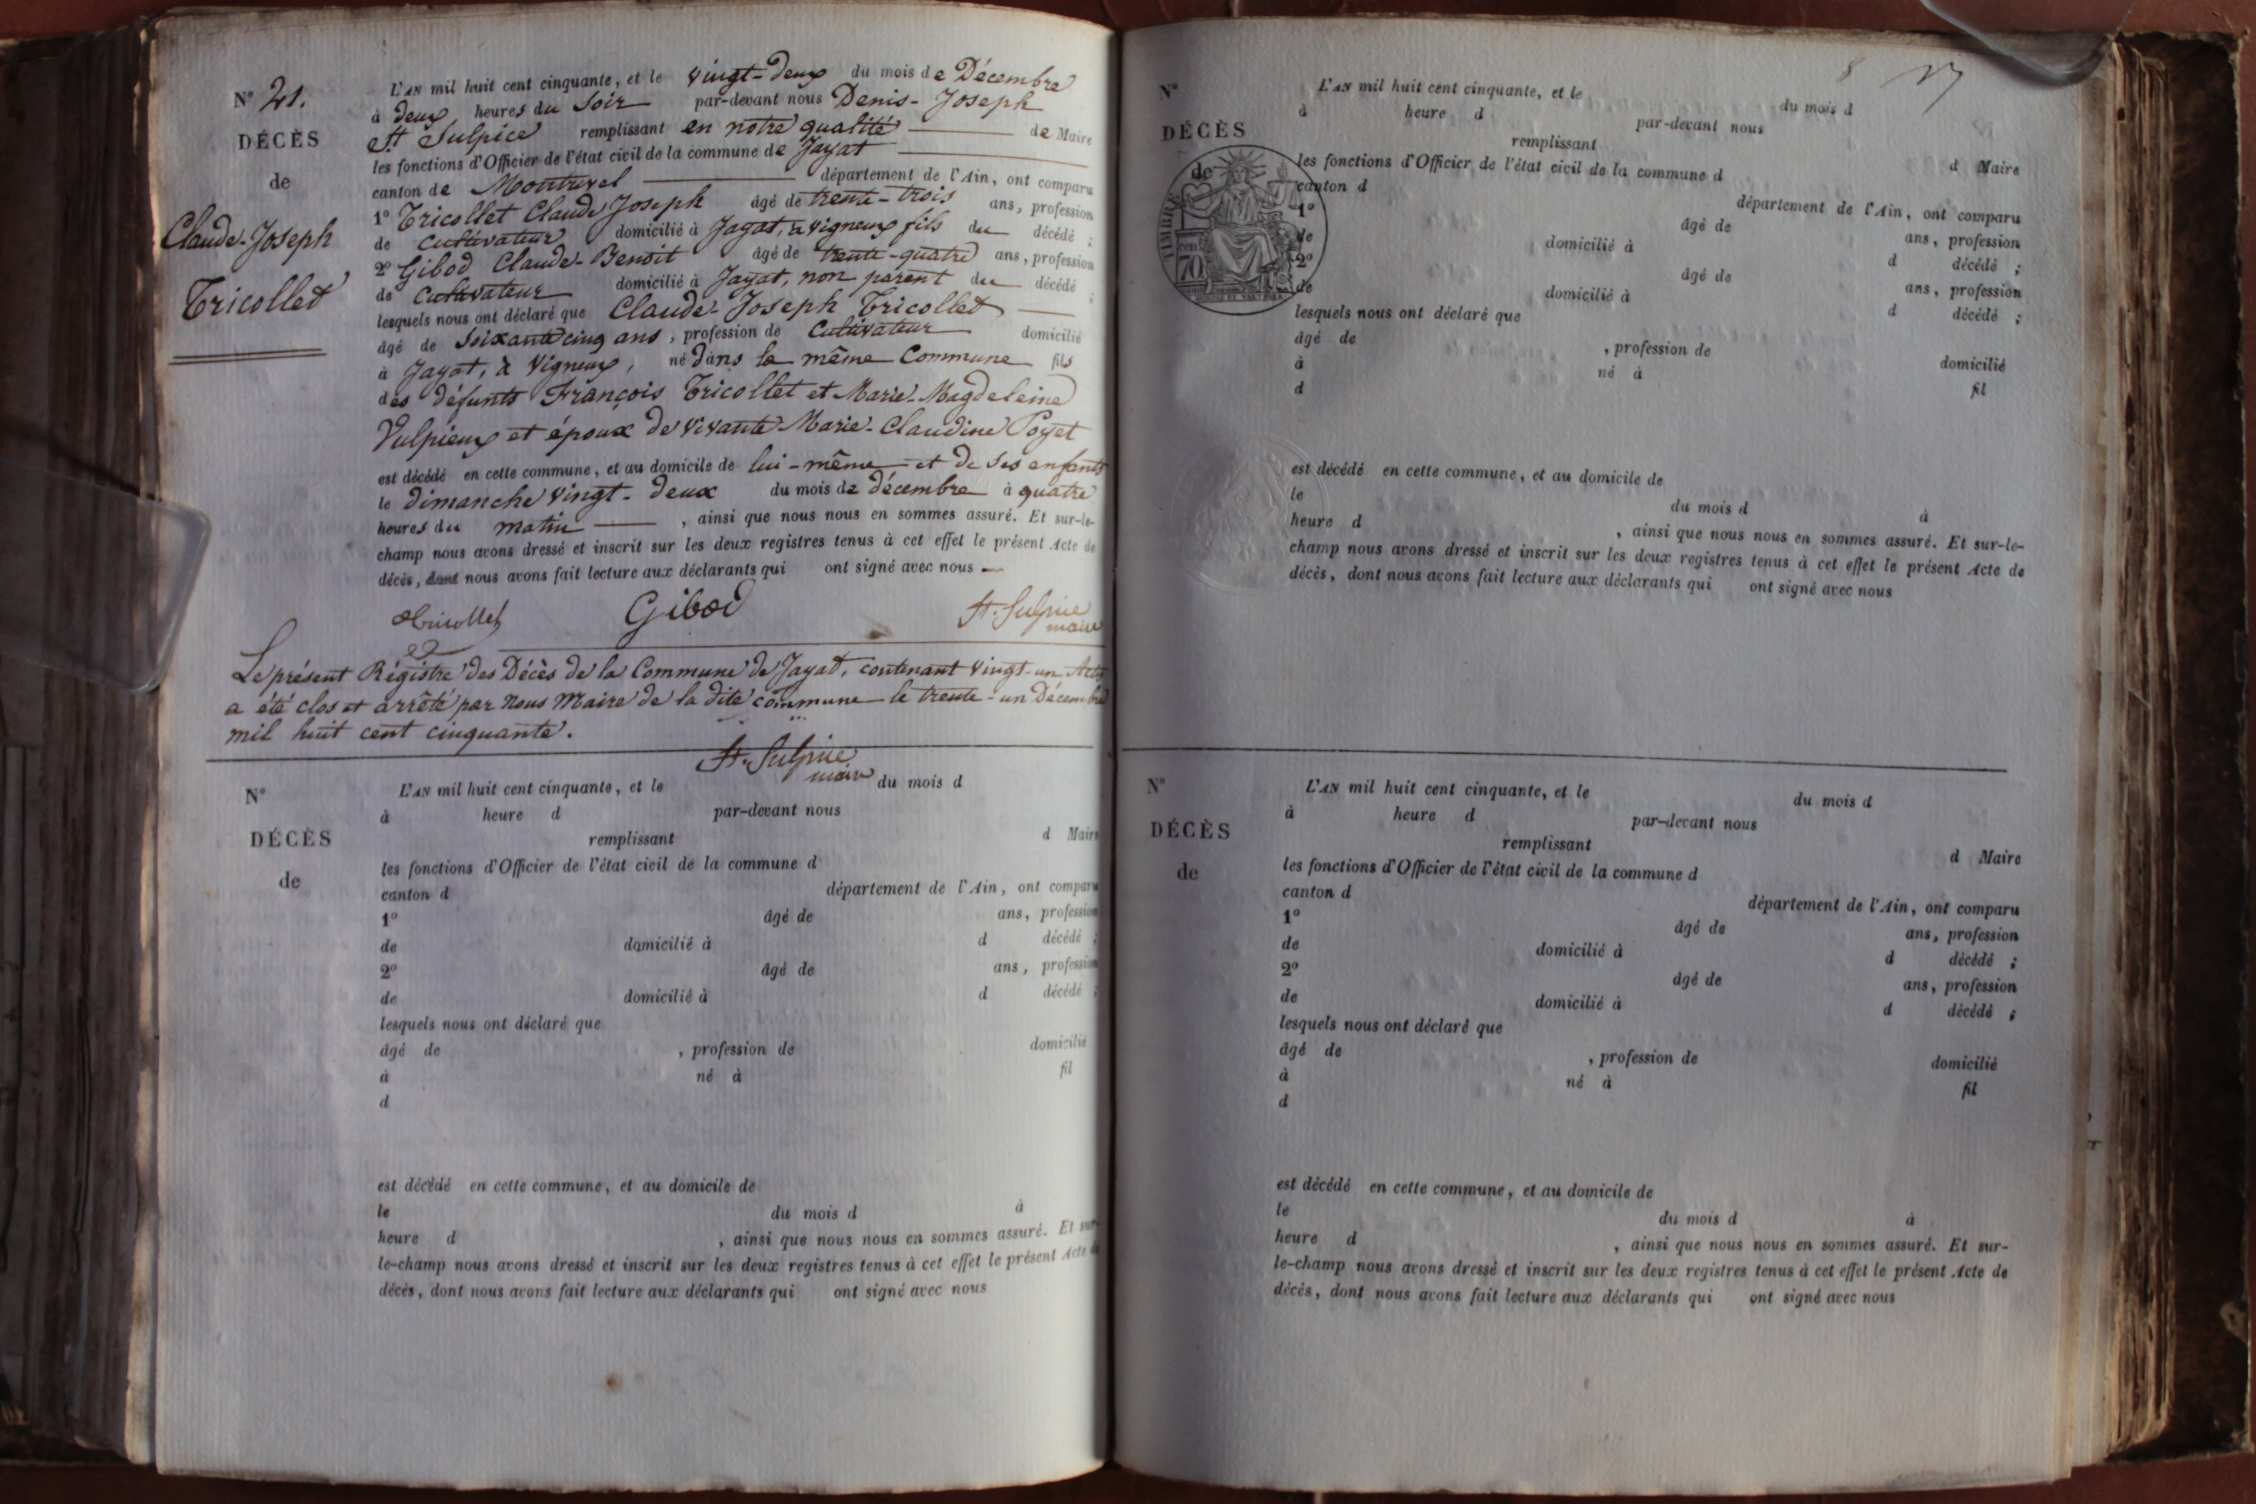 N° 21.
DÉCÈS
de
Claude-Joseph
Tricollet
L'AN mil huit cent cinquante, et le vingt-deux du mois de Décembre
à deux heures du Soir par-devant nous Denis-Joseph
St Sulpice remplissant en notre qualité de Maire
les fonctions d'Officier de l'état civil de la commune de Jayat
canton de Montrevel département de l'Ain, ont comparu
1° Tricollet Claude Joseph âgé de trente-trois ans, profession
de Cultivateur domicilié à Jayat, à Vigneux fils du décédé ;
2° Gibod Claude-Benoit âgé de trente-quatre ans, profession
de Cultivateur domicilié à Jayat, non parent du décédé ;
lesquels nous ont déclaré que Claude-Joseph Tricollet
âgé de Soixante cinq ans, profession de Cultivateur domicilié
à Jayat, à Vigneux, né dans la même Commune fils
des défunts François Tricollet et Marie-Magdeleine
Vulpieux et époux de vivante Marie-Claudine Poyet
est décédé en cette commune, et au domicile de lui-même et de ses enfants
le dimanche vingt-deux du mois de décembre à quatre
heures du matin , ainsi que nous nous en sommes assuré. Et sur-le-
champ nous avons dressé et inscrit sur les deux registres tenus à cet effet le présent Acte de
décès, dont nous avons fait lecture aux déclarants qui ont signé avec nous
Tricollet Gibod St. Sulpice
maire
Le présent Régistre des Décès de la Commune de Jayat, contenant vingt-un Actes
a été clos et arrêté par Nous Maire de la dite commune le trente-un Décembre
mil huit cent cinquante.
St. Sulpice
maire
N°
DÉCÈS
de
L'AN mil huit cent cinquante, et le du mois d
à heure d par-devant nous
remplissant d Maire
les fonctions d'Officier de l'état civil de la commune d
canton d département de l'Ain, ont comparu
1° âgé de ans, profession
de domicilié à d décédé ;
2° âgé de ans, profession
de domicilié à d décédé ;
lesquels nous ont déclaré que
âgé de , profession de domicilié
à né à fil
d
est décédé en cette commune, et au domicile de
le du mois d à
heure d , ainsi que nous nous en sommes assuré. Et sur-
le-champ nous avons dressé et inscrit sur les deux registres tenus à cet effet le présent Acte de
décès, dont nous avons fait lecture aux déclarants qui ont signé avec nous
8
N°
DÉCÈS
de
TIMBRE
70
L'AN mil huit cent cinquante, et le du mois d
à heure d par-devant nous
remplissant d Maire
les fonctions d'Officier de l'état civil de la commune d
canton d département de l'Ain, ont comparu
1° âgé de ans, profession
de domicilié à d décédé ;
2° âgé de ans, profession
de domicilié à d décédé ;
lesquels nous ont déclaré que
âgé de , profession de domicilié
à né à fil
d
est décédé en cette commune, et au domicile de
le du mois d à
heure d , ainsi que nous nous en sommes assuré. Et sur-le-
champ nous avons dressé et inscrit sur les deux registres tenus à cet effet le présent Acte de
décès, dont nous avons fait lecture aux déclarants qui ont signé avec nous
N°
DÉCÈS
de
L'AN mil huit cent cinquante, et le du mois d
à heure d par-devant nous
remplissant d Maire
les fonctions d'Officier de l'état civil de la commune d
canton d département de l'Ain, ont comparu
1° âgé de ans, profession
de domicilié à d décédé ;
2° âgé de ans, profession
de domicilié à d décédé ;
lesquels nous ont déclaré que
âgé de , profession de domicilié
à né à fil
d
est décédé en cette commune, et au domicile de
le du mois d à
heure d , ainsi que nous nous en sommes assuré. Et sur-
le-champ nous avons dressé et inscrit sur les deux registres tenus à cet effet le présent Acte de
décès, dont nous avons fait lecture aux déclarants qui ont signé avec nous